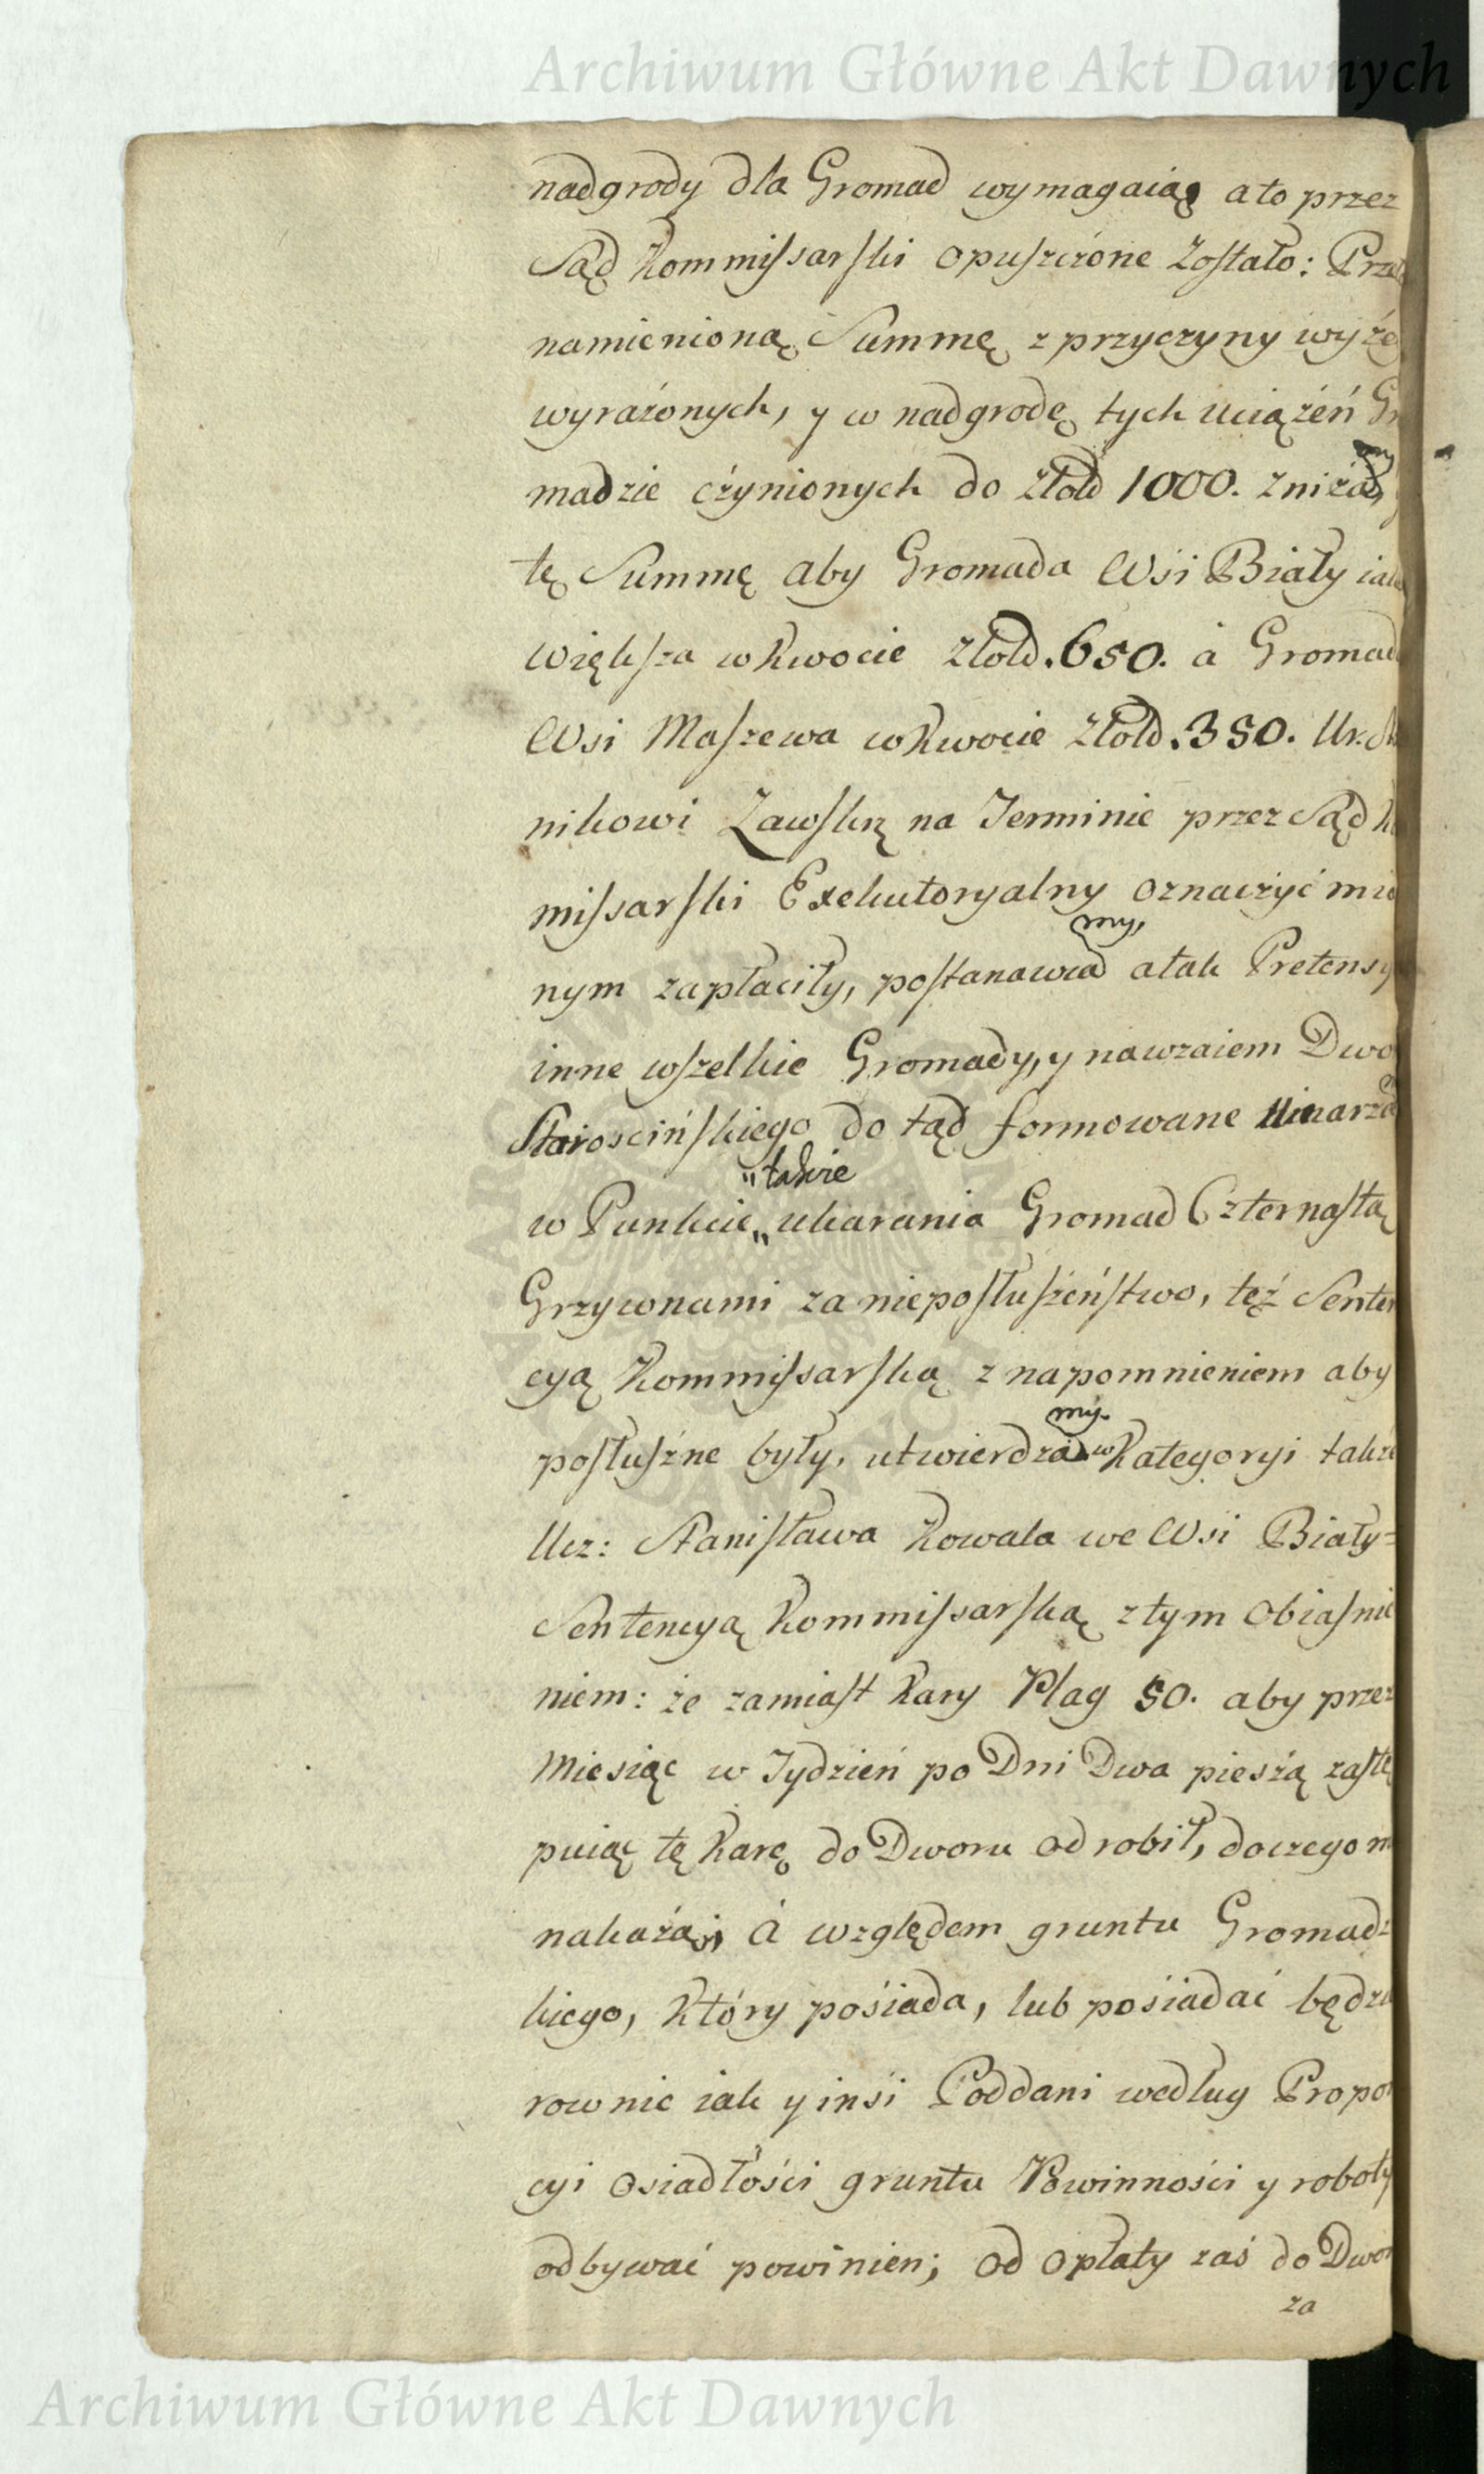 Archiwum Główne Akt Dawnych
nadgrody dla Gromad wymagaią a to przez
Sąd Kommissarski opuszczone zostało:
namienioną Summę z przyczyny wyże
wyrażonych, y w nadgrodę tych uciążeń Gr
madzie czynionych do złołd 1000. zniża my
tę Summę aby Gromada Wsi Biały iako
większa w kwocie złołd. 650. á Gromada
Wsi Maszewa w kwocie złołd. 350. Ur.
nikowi Zawskrz na Terminie przez Sąd Ko
missarski Exekutoryalny oznaczyć mia
nym zapłaciły, postanawia my, a tak Pretensy
inne wszelkie Gromady, y nawzaiem Dwo
Starościńskiego do tąd formowane Umarza
w Punkcie „ takie „ ukarania Gromad Czternastą
Grzywnami za nieposłuszeństwo, też Senten
cyą Kommissarską z napomnieniem aby
posłuszne były, utwierdza my. w Kategoryi także
Ucz: Stanisława Kowala we Wsi Biały-
Sentencyą Kommissarską z tym obiaśnie
niem: że zamiast kary Plag 50. aby przez
Miesiąc w Tydzień po Dni Dwa pieszą zastę
puiąc tę karę do Dworu odrobił, do czego
nakaża, á względem gruntu Gromadz-
kiego, który posiada, lub posiadać będzie
rownie iak y insi Poddani według Propor
cyi osiadłości gruntu Powinności y roboty
odbywać powinien; od opłaty zaś do Dwor
za
Archiwum Główne Akt Dawnych